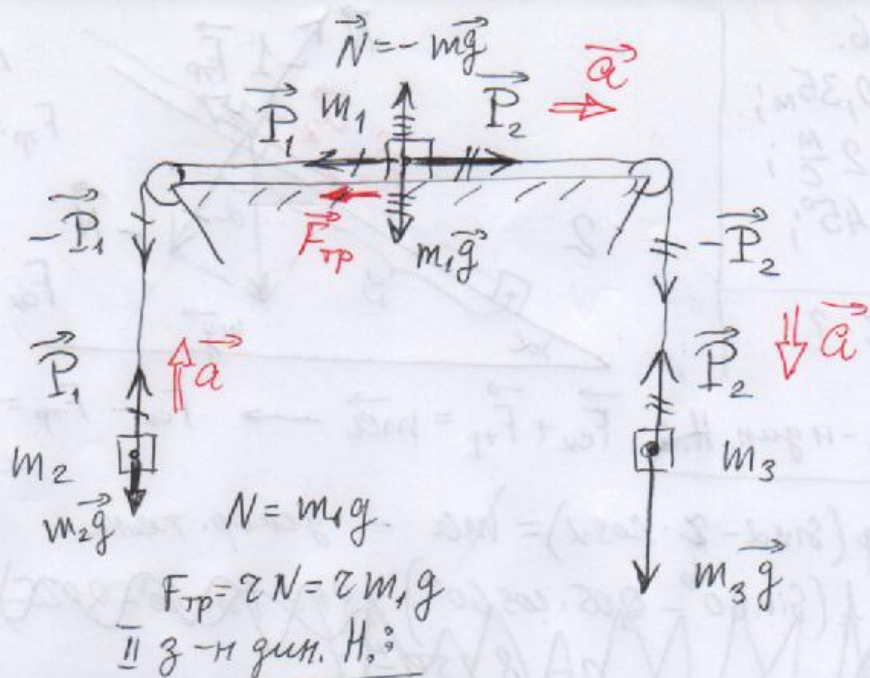 N⃗ = -mg⃗
m₁
P⃗₁ P⃗₂ a⃗
-P⃗₁ F⃗тр m₁g⃗ -P⃗₂
P⃗₁ a⃗ P⃗₂ a⃗
m₂ m₃
m₂g⃗ N = m₁g. m₃g⃗
Fтр = τN = τm₁g
II з-н дин. Н.:
0,35м;
45°;
2
= ma⃗